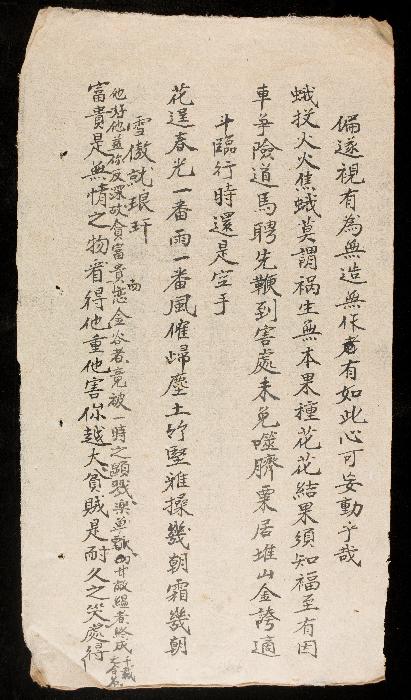 偏遂視有為無造無休者有如此心可妄動乎哉
蛾撲火火焦蛾莫謂禍生無本果種花花結果須知福至有因
車爭險道馬騁先鞭到害處未免噬臍粟居堆山金誇適
斗臨行時還是空手
花逞春光一番雨一番風催歸塵土竹堅雅操幾朝霜幾朝
雪傲就琅玕
富貴是無情之物看得他重他害你越大貧賤是耐久之交處得
他好他益你反深故貪富貴戀金谷者竟被一時之顯戮樂